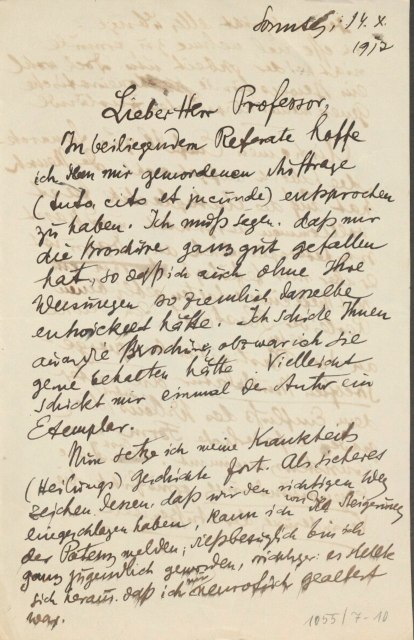 Sonntag, 14. X.
1912
Lieber Herr Professor,
In beiliegendem Referate hoffe
ich dem mir gewordenen Auftrage
(tuto, cito et jucunde) entsprochen
zu haben. Ich muß sagen, daß mir
die Broschüre ganz gut gefallen
hat, so daß ich auch ohne Ihre
Weisungen so ziemlich dasselbe
entwickelt hätte. Ich schicke Ihnen
auch die Broschüre, obzwar ich sie
gerne behalten hätte. Vielleicht
schickt mir einmal der Autor ein
Exemplar.
Nun setze ich meine Krankheits
(Heilungs) geschichte fort. Als sicheres
Zeichen dessen, daß wir den richtigen Weg
eingeschlagen haben, kann ich die Steigerung
der Potenz melden; diesbezüglich bin ich
ganz jugendlich geworden, richtiger: es stellte
sich heraus, daß ich nur neurotisch gealtert
war.
1055/7-10